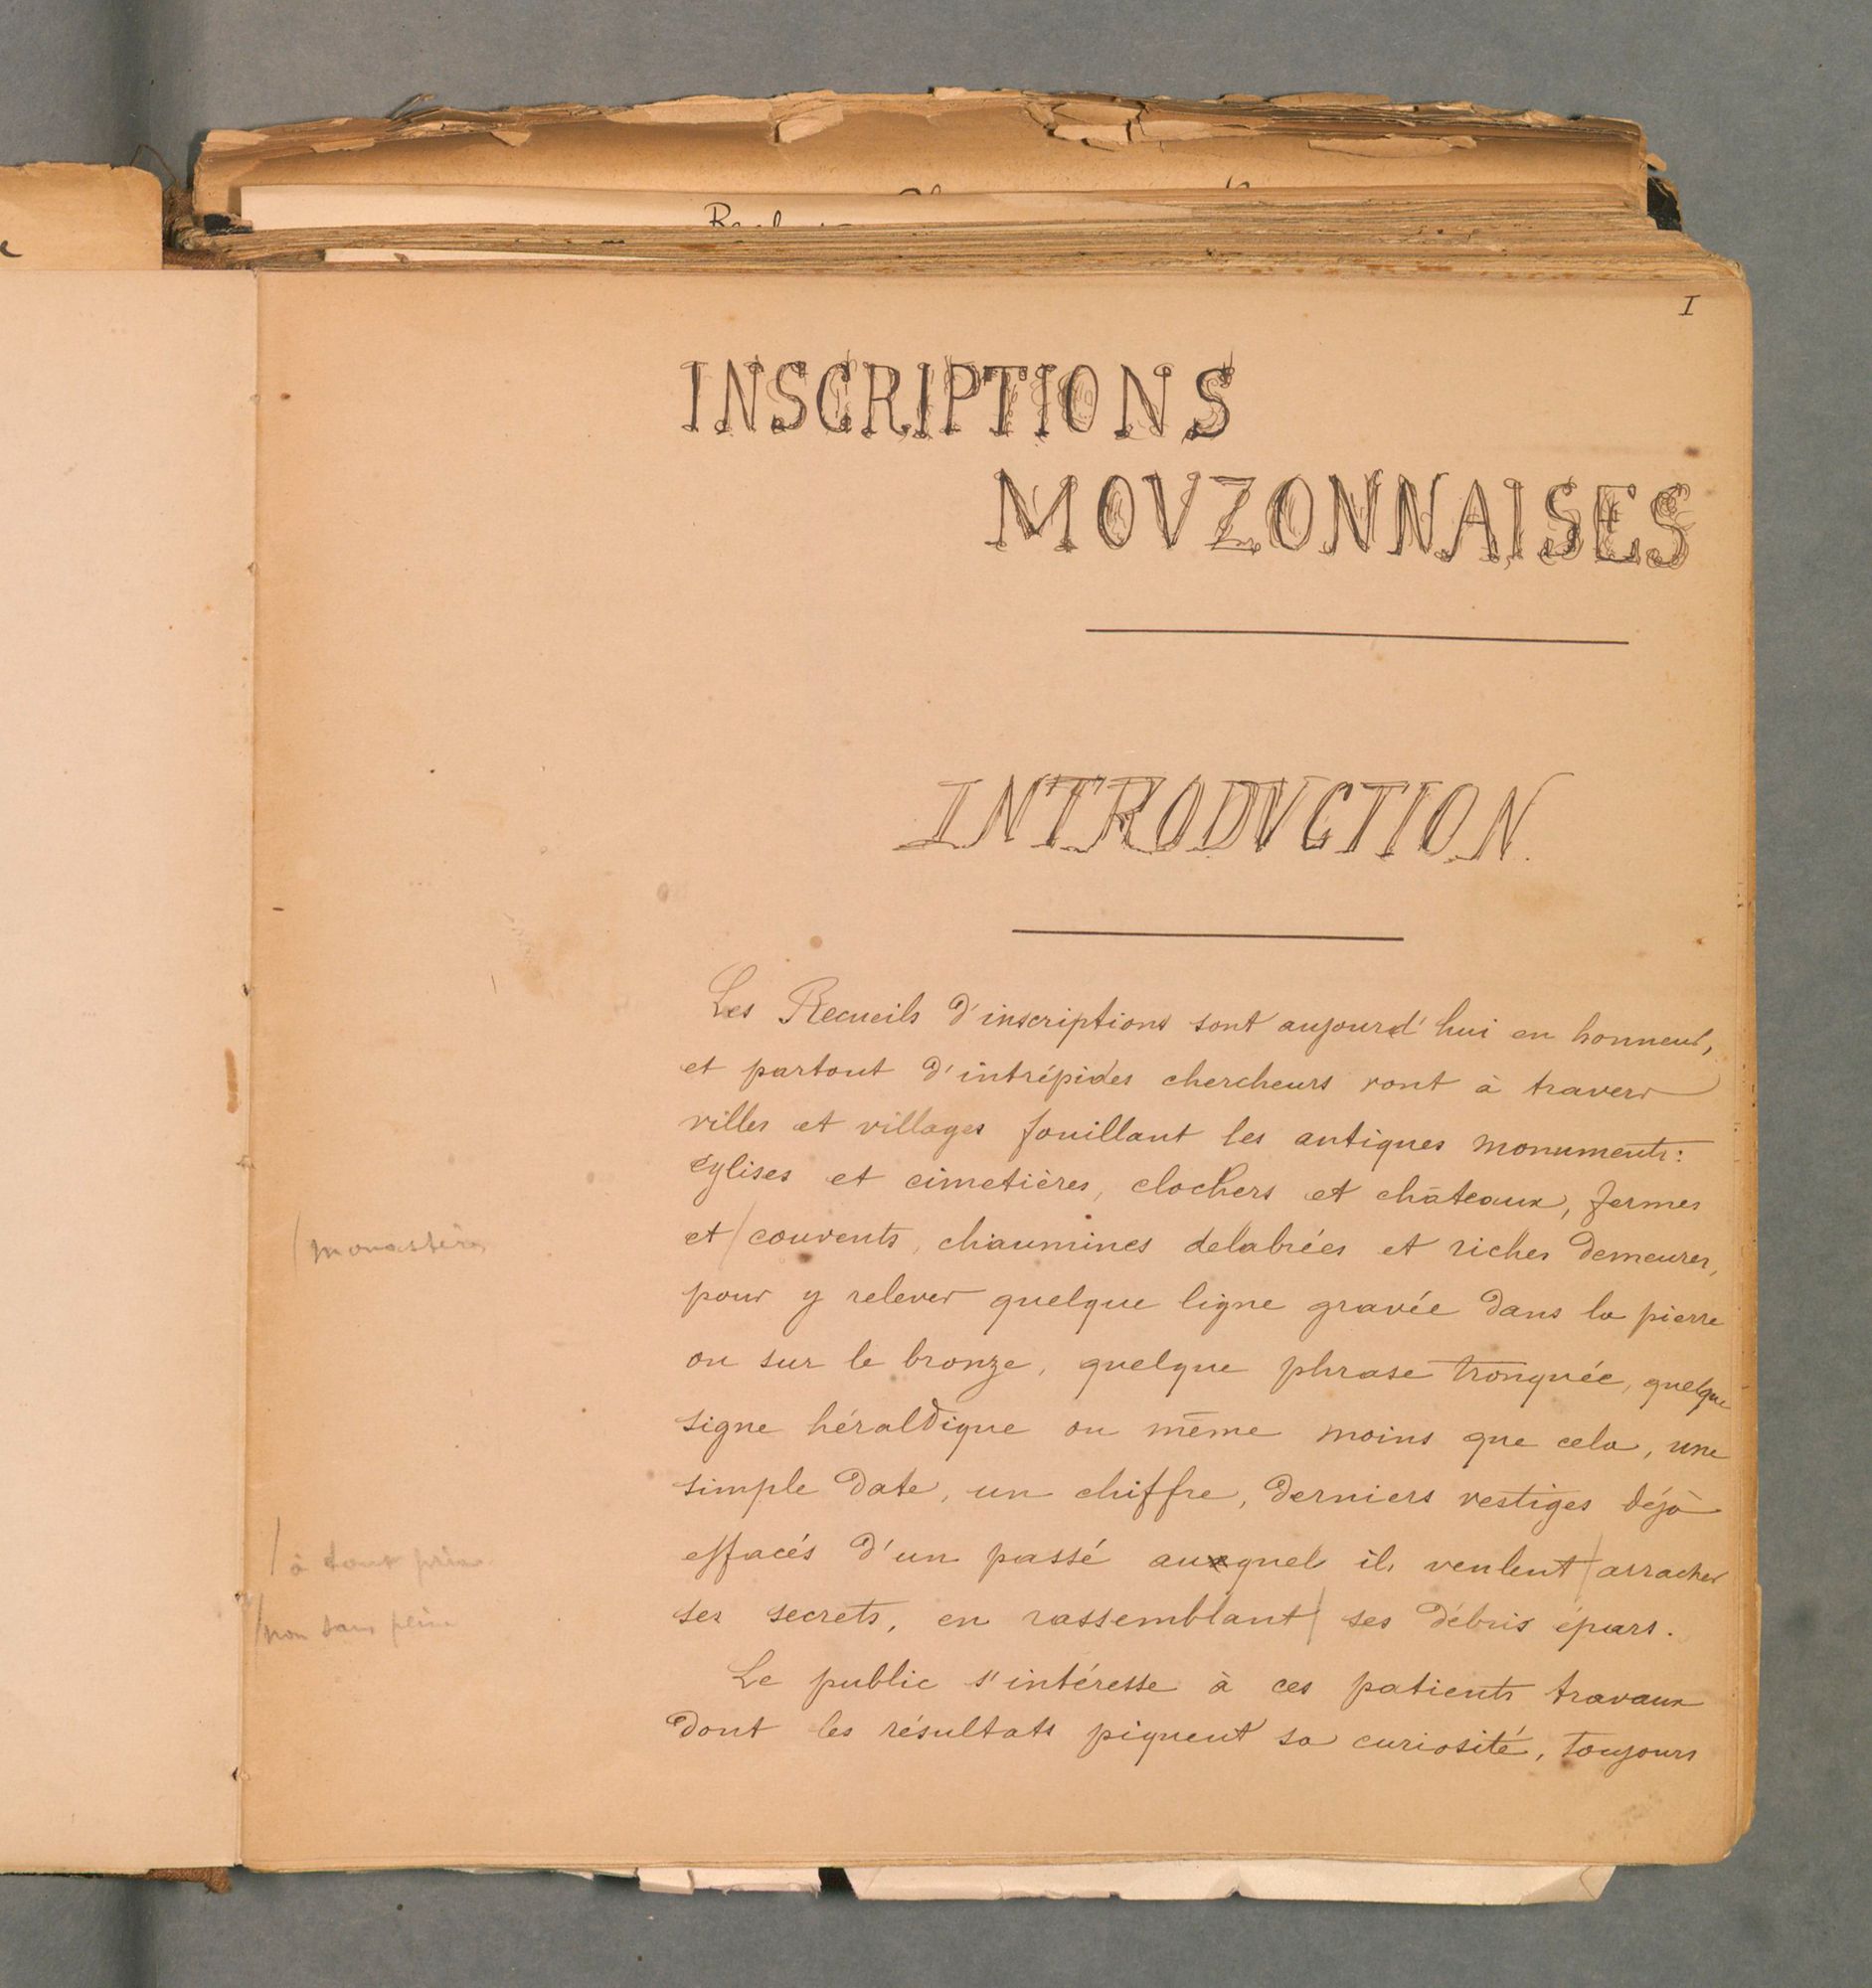 I
INSCRIPTIONS
MOVZONNAISES
INTRODVCTION.
Les Recueils d'inscriptions sont aujourd'hui en honneur,
et partout d'intrépides chercheurs vont à travers
villes et villages fouillant les antiques monuments:
églises et cimetières, clochers et châteaux, fermes
et / couvents, chaumines delabrées et riches demeures,
/ monastères
pour y relever quelque ligne gravée dans la pierre
ou sur le bronze, quelque phrase tronquée, quelque
signe héraldique ou même moins que cela, une
simple date, un chiffre, derniers vestiges déjà
effacés d'un passé auquel ils veulent / arracher
/ à tout prix
ses secrets, en rassemblant / ses débris épars.
/ non sans peine
Le public s'intéresse à ces patients travaux
dont les résultats piquent sa curiosité, toujours